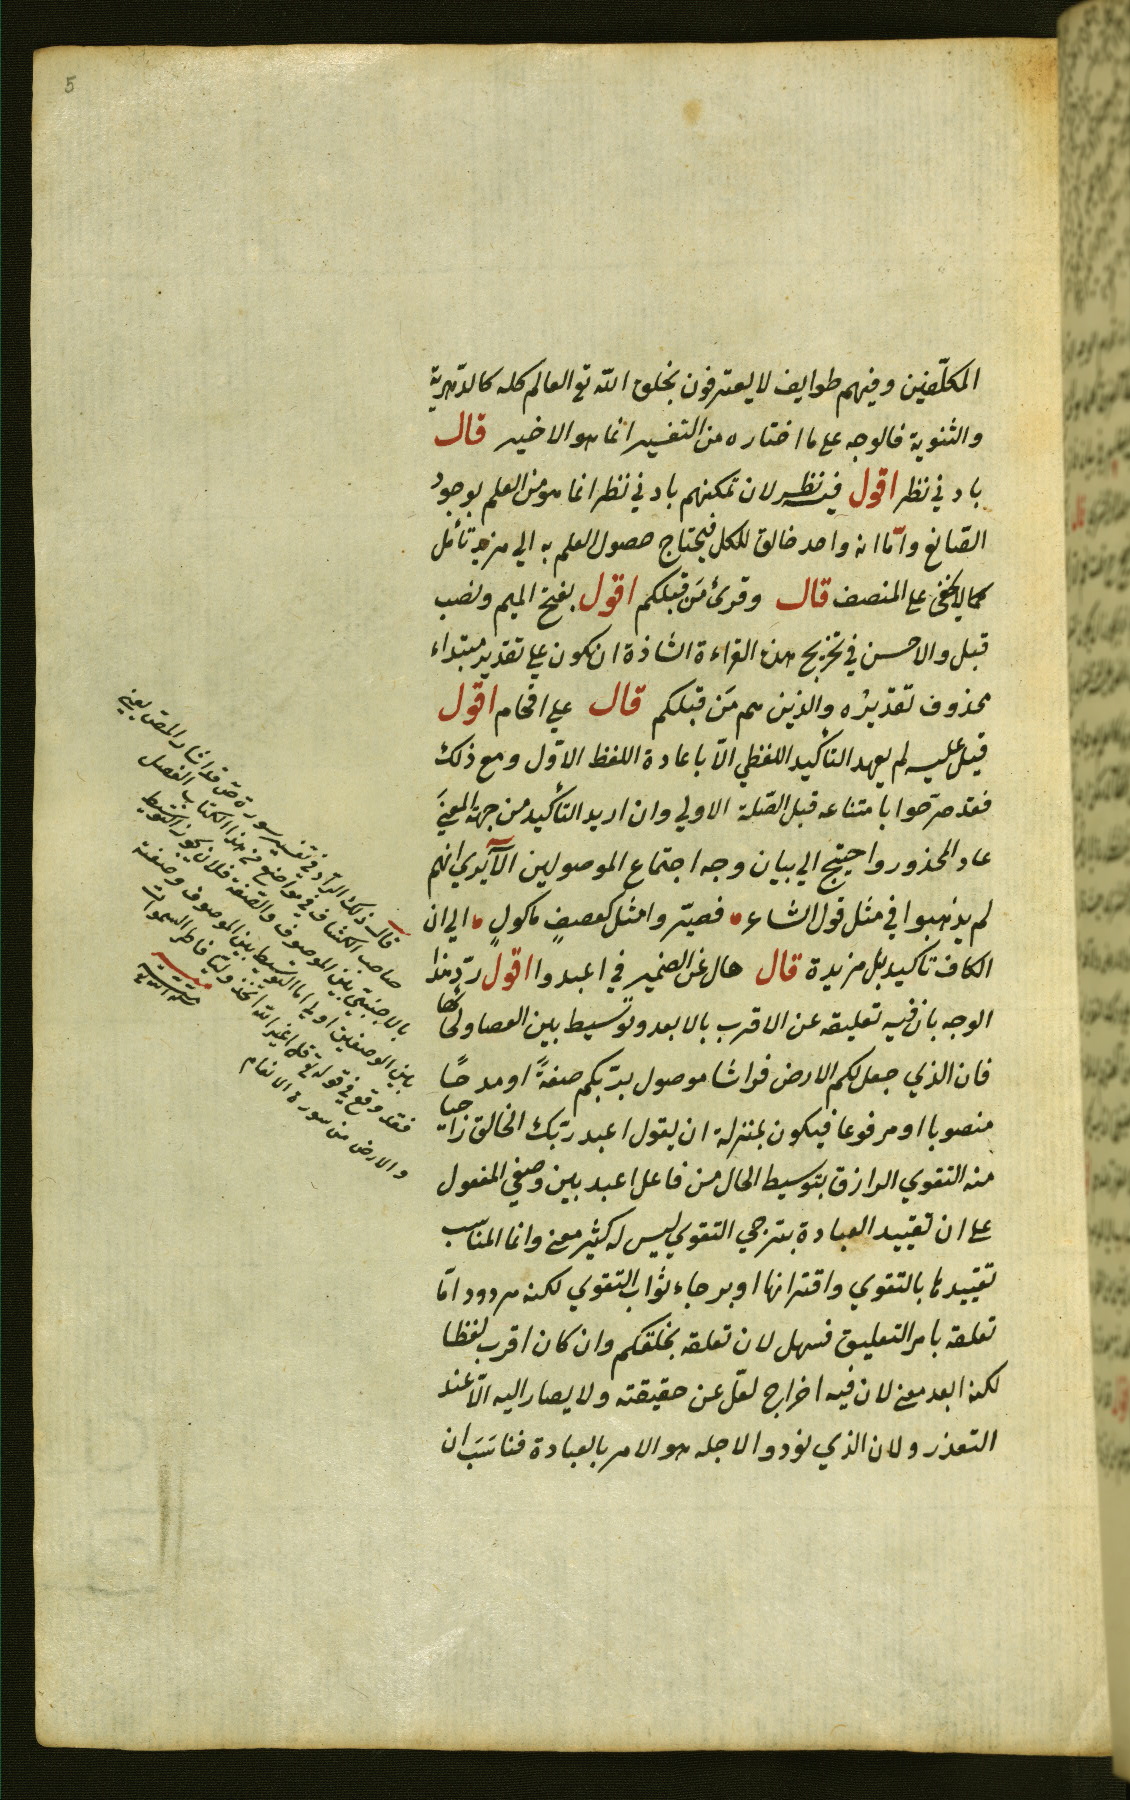 5
المكلّفين وفيهم طوايف لا يعترفون بخلق الله تع العالم كله كالدّهرية
والثنوية فالوجه على ما اختاره من التفسير انما هو الاخير قال
باد في نظر اقول فيه نظر لان تمكنهم باد في نظر انما هو من العلم بوجود
الصّانع وامّا انه واحد خالق للكل فيحتاج حصول العلم به الي مزيد تأمّل
كما لا يخفى على المنصف قال وقرئ مَن قبلكم اقول بفتح الميم ونصب
قبل والاحسن في تخريج هذه القراءة الشاذة ان يكون على تقدير مبتداء
محذوف تقديرُه والذين هم مَن قبلكم قال علي اقحام اقول
قيل عليه لم يعهد التأكيد اللفظي الّا باعادة اللفظ الاوّل ومع ذلك
فقد صرّحوا بامتناعه قبل الصّلة الاولي وان اريد التأكيد من جهة المعنيَ
عاد المحذور واحتيج الي بيان وجه اجتماع الموصولين الآ يري انهم
لم يذهبوا في مثل قول الشاعر فصيّروا مثل كعصفٍ مأكولٍ الي ان
الكاف تأكيد بل مزيدة قال حال عن الضمير في اعبدوا اقول ردّ هذا
الوجه بان فيه تعليقه عن الاقرب بالابعد وتوسيط بين العصا ولحائها
فان الذي جعل لكم الارض فراشا موصول بربّكم صفةً او مدحًا
منصوبا او مرفوعا فيكون بمنزلة ان يقول اعبد ربّك الخالق راجيا
منه التقوي الرازق بتوسيط الحال من فاعل اعبد بين وصفي المفعول
على ان تقييد العبادة بترجي التقوي ليس له كثير معنى وانما المناسب
تقييدها بالتقوي واقترانها او برجاء ثواب التقوي لكنه مردود امّا
تعلقه بامر التعليق فسهل لان تعلقه بخلقكم وان كان اقرب لفظا
لكنه ابعد معنى لان فيه اخراج لعلّ عن حقيقته ولا يصار اليه الّا عند
التعذر ولان الذي نودوا لاجله هو الامر بالعبادة فناسَبَ ان
قال ذلك الرادّ في تفسير سورة ق قد اشار المص يعني
صاحب الكشاف في مواضع من هذا الكتاب الفصل
بالاجنبيّ بين الموصوف والصّفة فلان يكون التوسيط
بين الوصفين اولي اما التوسيط بين الموصوف وصفته
فقد وقع في قوله تع قل اغير الله اتخذ وليّا فاطر السموات
والارض من سورة الانعام
منه